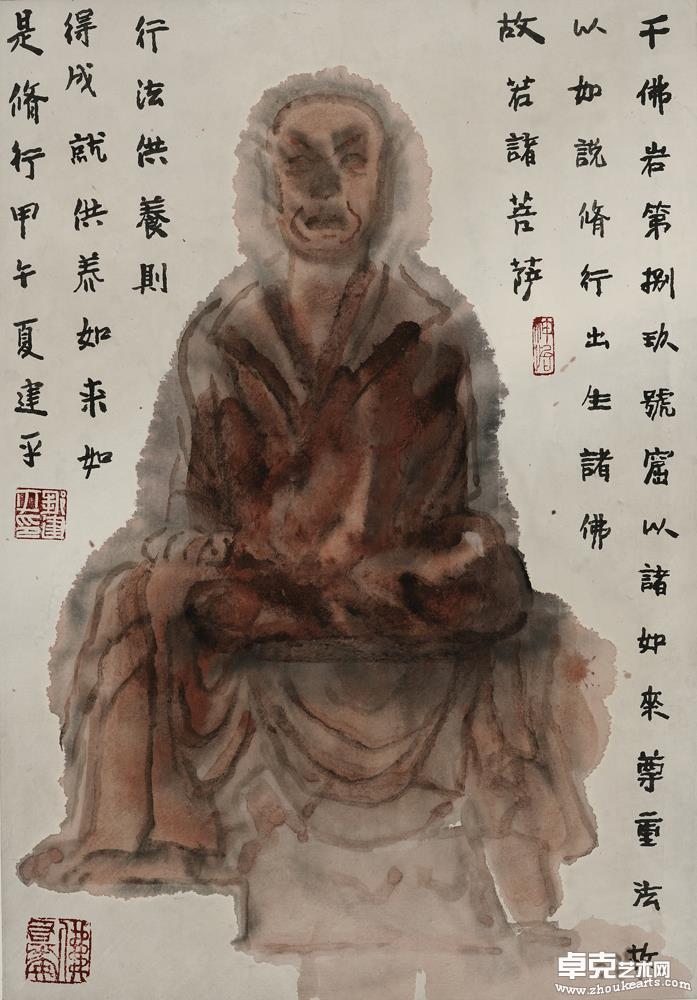 千佛岩第捌玖號窟以諸如來尊重法故
以如說脩行出生諸佛
故若諸菩薩
行法供養則
得成就供养如来如
是脩行甲午夏建平
卓克艺术网
www.zhoukearts.com